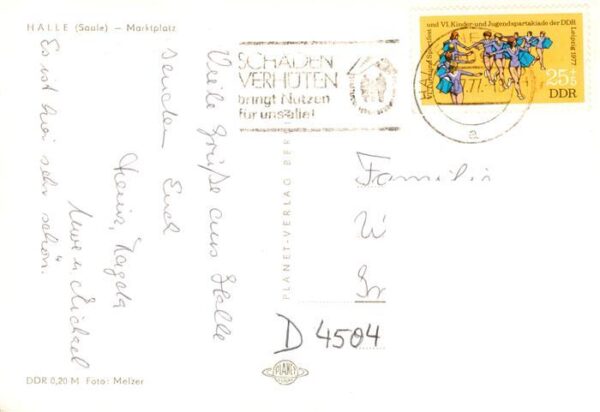 HALLE (Saale) – Marktplatz
Viele Grüße aus Halle
senden Euch
Heinz, Magda
Uwe u. Michael
Es ist hier sehr schön.
DDR 0,20 M Foto: Melzer
PLANET-VERLAG BER
PLANET
SCHÄDEN
VERHÜTEN
bringt Nutzen
für uns alle!
VI. Turn- und Sportfest und VI. Kinder- und Jugendspartakiade der DDR
Leipzig 1977
25+5
DDR
77
a
Familie
W
Gr
D 4504